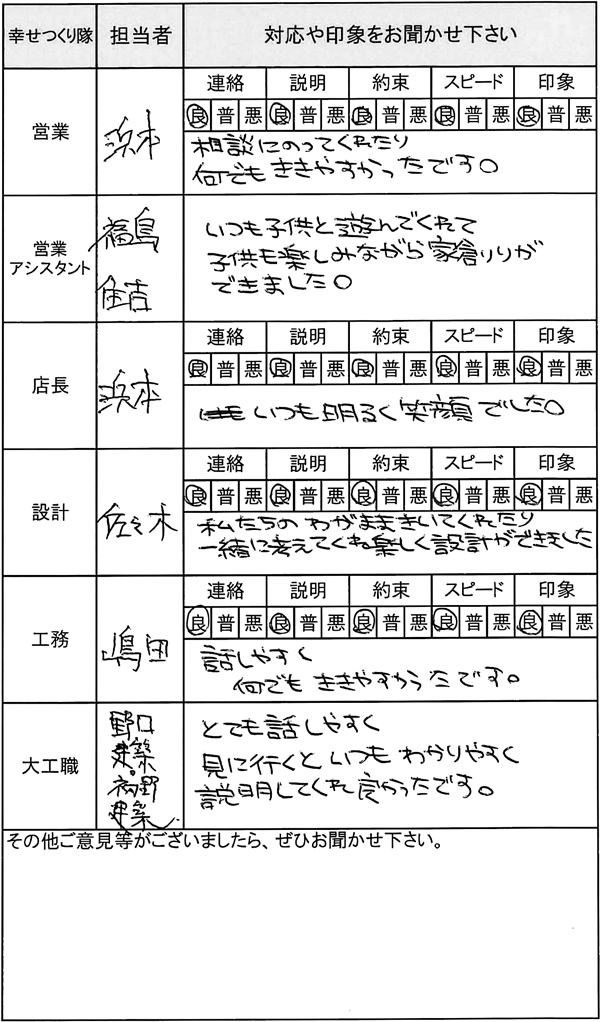 幸せつくり隊 担当者 対応や印象をお聞かせ下さい
営業 浜本
連絡 説明 約束 スピード 印象
良 普 悪 良 普 悪 良 普 悪 良 普 悪 良 普 悪
相談にのってくれたり
何でもききやすかったです。
営業
アシスタント
福島
住吉
いつも子供と遊んでくれて
子供も楽しみながら家創りが
できました。
店長 浜本
連絡 説明 約束 スピード 印象
良 普 悪 良 普 悪 良 普 悪 良 普 悪 良 普 悪
いつも明るく笑顔でした。
設計 佐々木
連絡 説明 約束 スピード 印象
良 普 悪 良 普 悪 良 普 悪 良 普 悪 良 普 悪
私たちのわがままきいてくれたり
一緒に考えてくね楽しく設計ができました
工務 嶋田
連絡 説明 約束 スピード 印象
良 普 悪 良 普 悪 良 普 悪 良 普 悪 良 普 悪
話しやすく
何でもききやすかったです。
大工職
野口
建築
建築
とても話しやすく
見に行くといつもわかりやすく
説明してくれ良かったです。
その他ご意見等がございましたら、ぜひお聞かせ下さい。